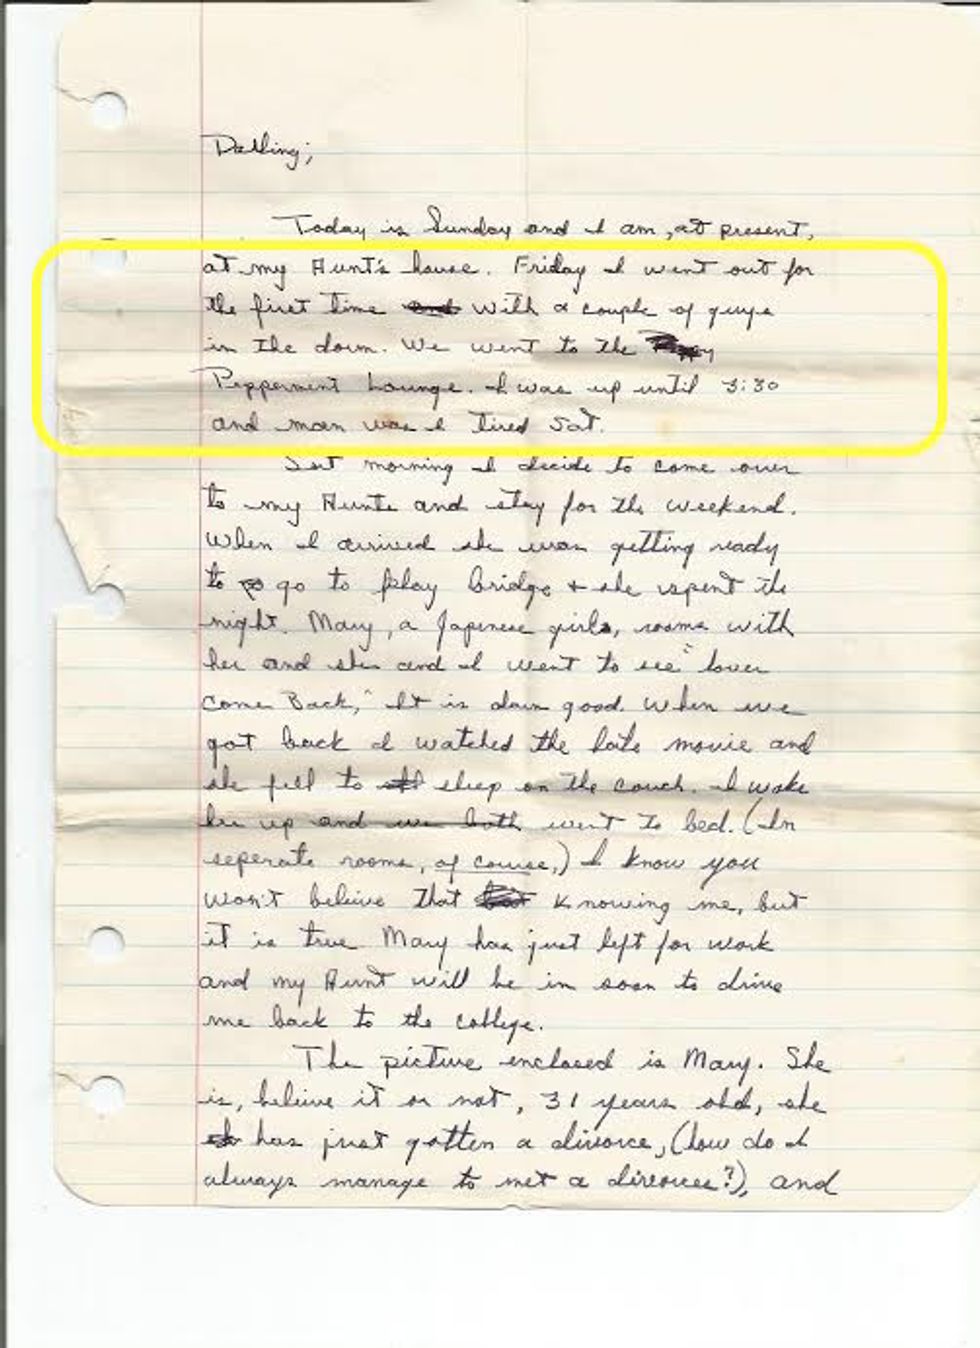 Darling;
Today is Sunday and I am, at present,
at my Aunt's house. Friday I went out for
the first time and with a couple of guys
in the dorm. We went to the
Peppermint Lounge. I was up until 3:30
and man was I tired Sat.
Sat morning I decide to come over
to my Aunts and stay for the weekend.
When I arrived she was getting ready
to go to play bridge + she spent the
night. Mary, a Japenese girls, rooms with
her and she and I went to see "Lover
Come Back," It is darn good. When we
got back I watched the late movie and
she fell to sleep on the couch. I woke
her up and we both went to bed. (In
seperate rooms, of course,) I know you
won't believe that knowing me, but
it is true. Mary has just left for work
and my Aunt will be in soon to drive
me back to the college.
The picture enclosed is Mary. She
is, believe it or not, 31 years old, she
has just gotten a divorce, (how do I
always manage to met a divorcee?), and